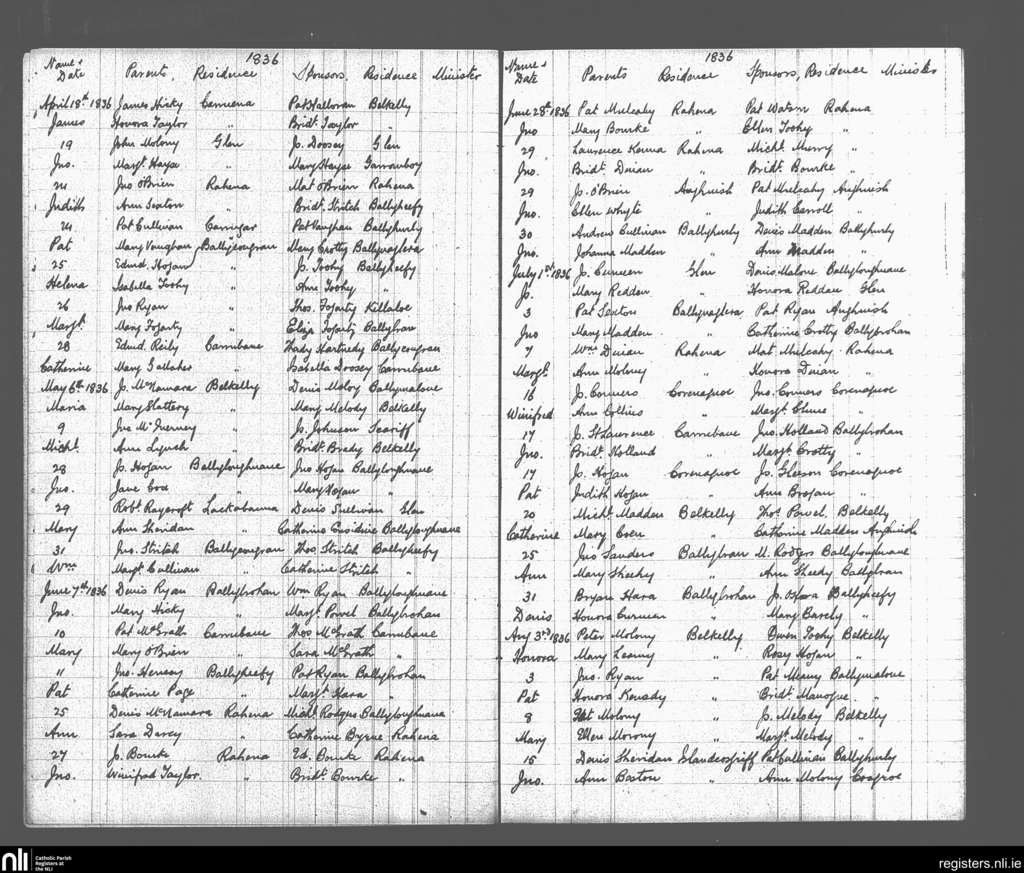 1836
Name & Date Parents, Residence Sponsors, Residence Minister
April 18th 1836 James Hicky Cammena Pat Halloran Belkelly
James Honora Taylor " Bridt. Taylor "
19 John Molony Glen Js. Doosey Glen
Jno. Margt. Hayse " Mary Hayse Garranboy
24 Jno O'Brien Rahena Mat O'Brien Rahena
Judith Ann Sexton " Bridt. Stritch Ballyheefy
24 Pat Cullinan Carrigar Pat Vaughan Ballyhurly
Pat Mary Vaughan Ballycougran Mary Crotty Ballyvaglera
25 Edmd. Hogan " Js. Toohy Ballyheefy
Helena Isabella Toohy " Ann Toohy "
26 Jno Ryan " Thos. Fogarty Killaloe
Margt. Mary Fogarty " Eliza Fogarty Ballybran
28 Edmd. Reily Carrubane Thady Hartnedy Ballycougran
Catherine Mary Gallaher " Isabella Doosey Carrubane
May 6th 1836 Js. McNamara Belkelly Denis Moloy Ballymalone
Maria Mary Slattery " Mary Melody Belkelly
9 Jno McInerney " Js. Johnson Scariff
Michl. Ann Lynch " Bridt. Brady Belkelly
28 Js. Hogan Ballyloughnane Jno Hogan Ballyloughnane
Jno. Jane Cox " Mary Hogan "
29 Robt. Raycroft Lackabanna Denis Sullivan Glen
Mary Ann Sheridan " Catherine Considine Ballyloughnane
31 Jno. Stritch Ballycougran Thos. Stritch Ballyheefy
Wm Margt. Cullinan " Catherine Stritch "
June 7th 1836 Denis Ryan Ballybrohan Wm Ryan Ballyloughnane
Jno. Mary Hicky " Margt. Powel Ballybrohan
10 Pat McGrath Carrubane Thos McGrath Carrubane
Mary Mary O'Brien " Sara McGrath "
11 Jno. Henessy Ballyheefy Pat Ryan Ballybrohan
Pat Catherine Page " Margt. Hara "
25 Denis McNamara Rahena Michl. Rodgers Ballyloughnane
Ann Sara Darcy " Catherine Byrne Rahena
27 J. Bourke Rahena Ed. Bourke Rahena
Jno. Winifred Taylor. " Bridt. Bourke "
1836
Name & Date Parents Residence Sponsors, Residence Minister
June 28th 1836 Pat Mulcahy Rahena Pat Watson Rahena
Jno Mary Bourke " Ellen Toohy "
29 Laurence Kenna Rahena Michl. Murry "
Jno. Bridt. Duian " Bridt. Bourke "
29 Js. O'Brien Aughnish Pat Mulcahy Aughnish
Jno. Ellen Whyte " Judith Carroll "
30 Andrew Cullinan Ballyhurly Denis Madden Ballyhurly
Jno. Johanna Madden " Ann Madden "
July 1st 1836 Js. Curneen Glen Denis Malone Ballyloughnane
Js. Mary Reddan " Honora Reddan Glen
3 Pat Sexton Ballyvaglera Pat Ryan Aughnish
Jno Mary Madden " Catherine Crotty Ballybrohan
7 Wm Duian Rahena Mat. Mulcahy Rahena
Margt. Ann Molony " Honora Duian "
16 Js. Connors Corcnapoe Jno. Connors Corcnapoe
Winifred Ann Collins " Margt. Clune "
17 Js. St Laurence Carrubane Jno. Holland Ballybrohan
Jno. Bridt. Holland " Margt. Crotty "
17 Js. Hogan Corcnapoe Js. Gleeson Corcnapoe
Pat Judith Hogan " Ann Brogan "
20 Michl. Madden Belkelly Thos. Powel. Belkelly
Catherine Mary Coen " Catherine Madden Aughnish
25 Jno Sanders Ballybran M. Rodgers Ballyloughnane
Ann Mary Sheehy " Ann Sheedy Ballybran
31 Bryan Hara Ballybrohan Js. O'Hara Ballyheefy
Denis Honora Curneen " Mary Barchy "
Aug 3rd 1836 Peter Molony Belkelly Owen Toohy Belkelly
Honora Mary Leamy " Rosey Hogan "
3 Jno. Ryan " Pat Meany Ballymalone
Pat Honora Kenedy " Bridt. Manogue "
8 Pat Molony " J. Melody Belkelly
Mary Ellen Morony " Margt. Melody "
15 Denis Sheridan Islandcosgriff Pat Cullinan Ballyhurly
Jno. Ann Boston " Ann Molony Cosgroe
nli Catholic Parish
Registers at
the NLI
registers.nli.ie